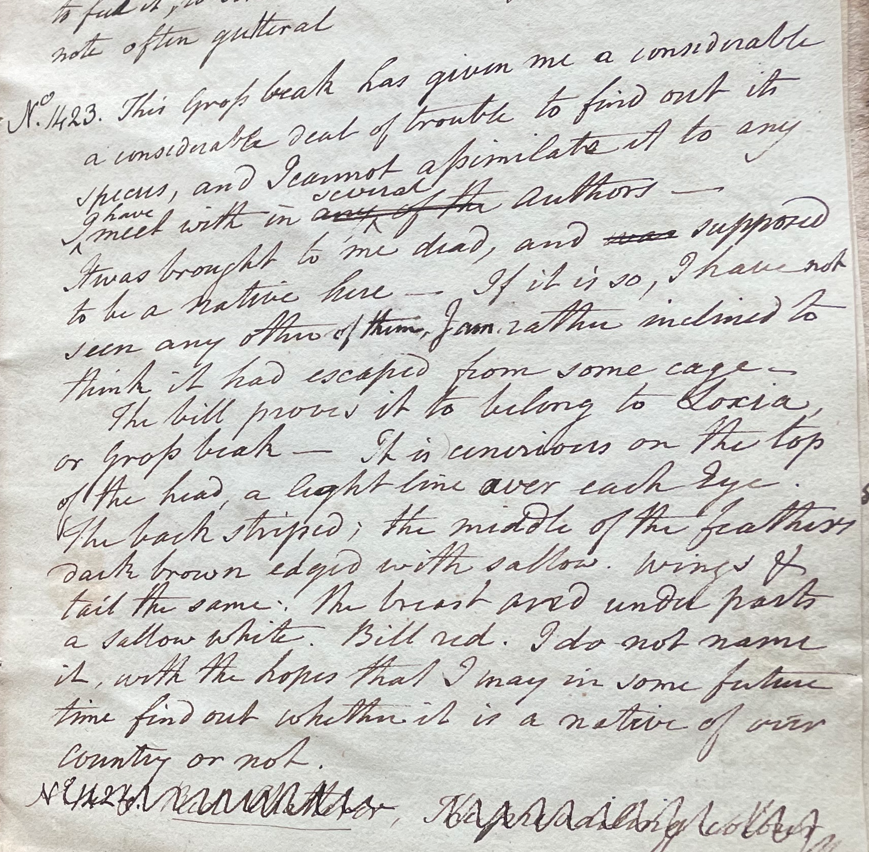 note often gutteral
No. 1423. This Grosbeak has given me a considerable
a considerable deal of trouble to find out its
species, and I cannot assimilate it to any
I have several
meet with in any of the authors —
It was brought to me dead, and was supposed
to be a native here — If it is so, I have not
seen any other of them, I am rather inclined to
think it had escaped from some cage —
The bill proves it to belong to Loxia,
or Grosbeak — It is cenerious on the top
of the head, a light line over each Eye.
The back striped; the middle of the feathers
dark brown edged with sallow. Wings &
tail the same. The breast and under parts
a sallow white. Bill red. I do not name
it, with the hopes that I may in some future
time find out whether it is a native of our
country or not.
No. 1424.